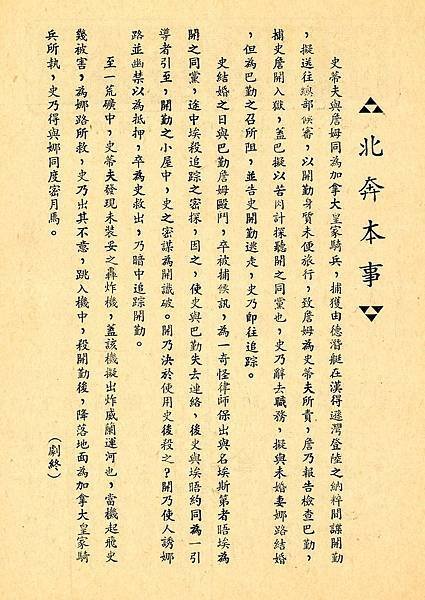 北奔本事
史蒂夫與詹姆同為加拿大皇家騎兵，捕獲由德潛艇在漢得遜灣登陸之納粹間諜開勤
，擬送往總部候審，以開勤身質未便旅行，致詹姆為史蒂夫所責，詹乃報告檢查巴勤，
捕史詹開入獄，蓋巴擬以苦肉計探聽開之同黨也，史乃辭去職務，擬與未婚妻娜路結婚
，但為巴勤之召所阻，並告史開勤逃走，史乃即往追踪。
史結婚之日與巴勤詹姆毆鬥，卒被捕候訊，為一奇怪律師保出與名埃斯第者晤埃為
開之同黨，途中埃殺追踪之密探，因之，使史與巴勤失去連絡，後史與埃晤約同為一引
導者引至，開勤之小屋中，史之密謀為開識破。開乃決於使用史後殺之？開乃使人誘娜
路並幽禁以為抵押，卒為史救出，乃暗中追踪開勤。
至一荒礦中，史蒂夫發現未裝妥之轟炸機，蓋該機擬出炸威蘭運河也，當機起飛史
幾被害，為娜路所救，史乃出其不意，跳入機中，殺開勤後，降落地面為加拿大皇家騎
兵所執，史乃得與娜同度密月焉。
（劇終）